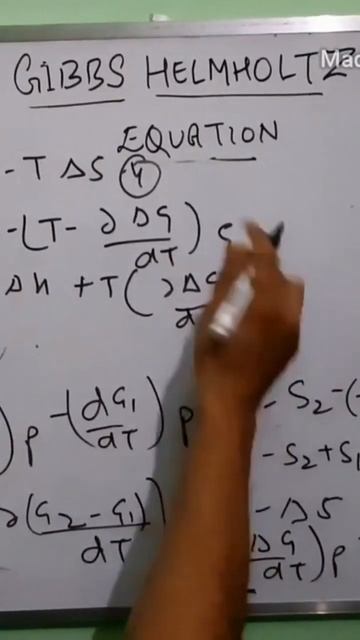 Mac
GIBBS HELMHOLTZ
EQUATION
- T ΔS (4)
- (T - ∂ΔG/dT)
ΔH + T (∂ΔG
)p - (dG₁/dT)p - S₂ - (-
- S₂ + S₁
∂(G₂ - G₁)/dT - ΔS
ΔG/dT)p